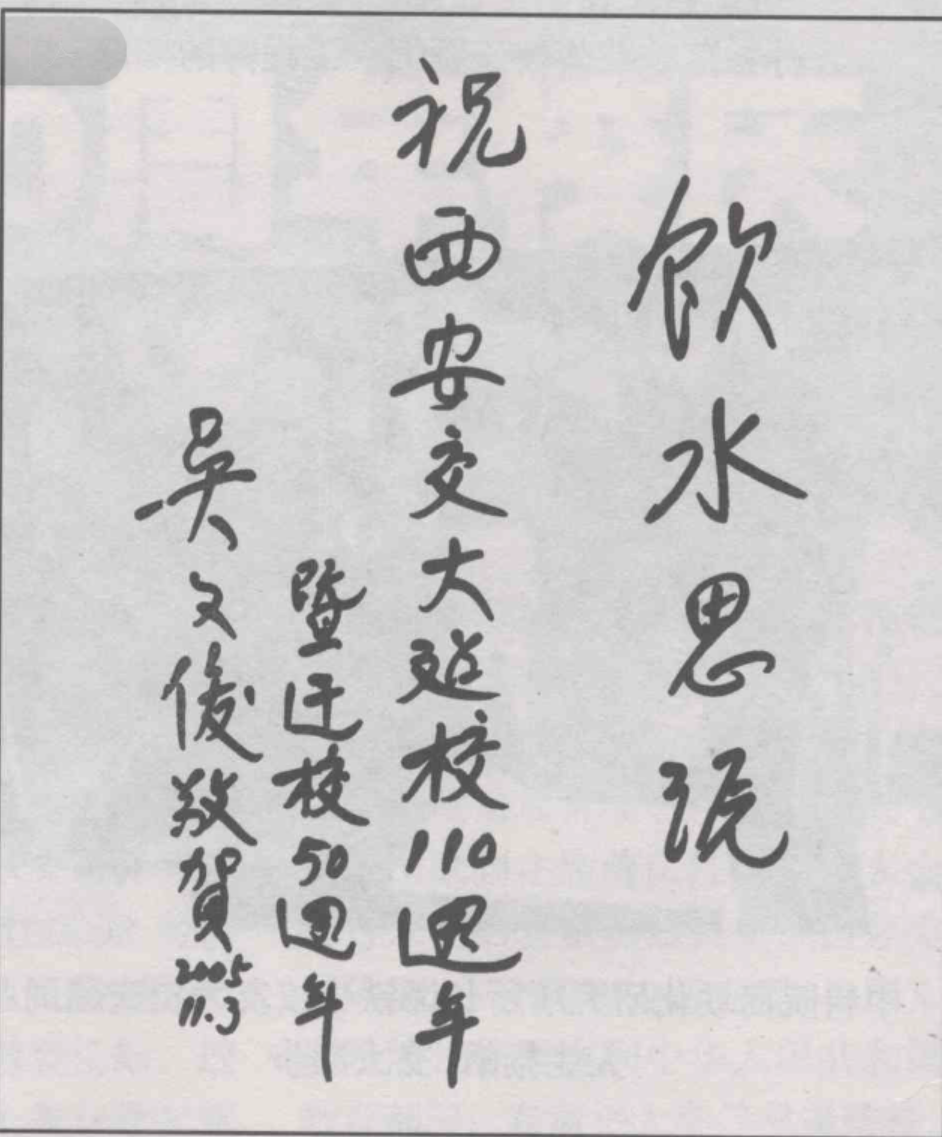 飲水思源
祝西安交大建校110週年
暨迁校50週年
吴文俊敬賀2005
11.3